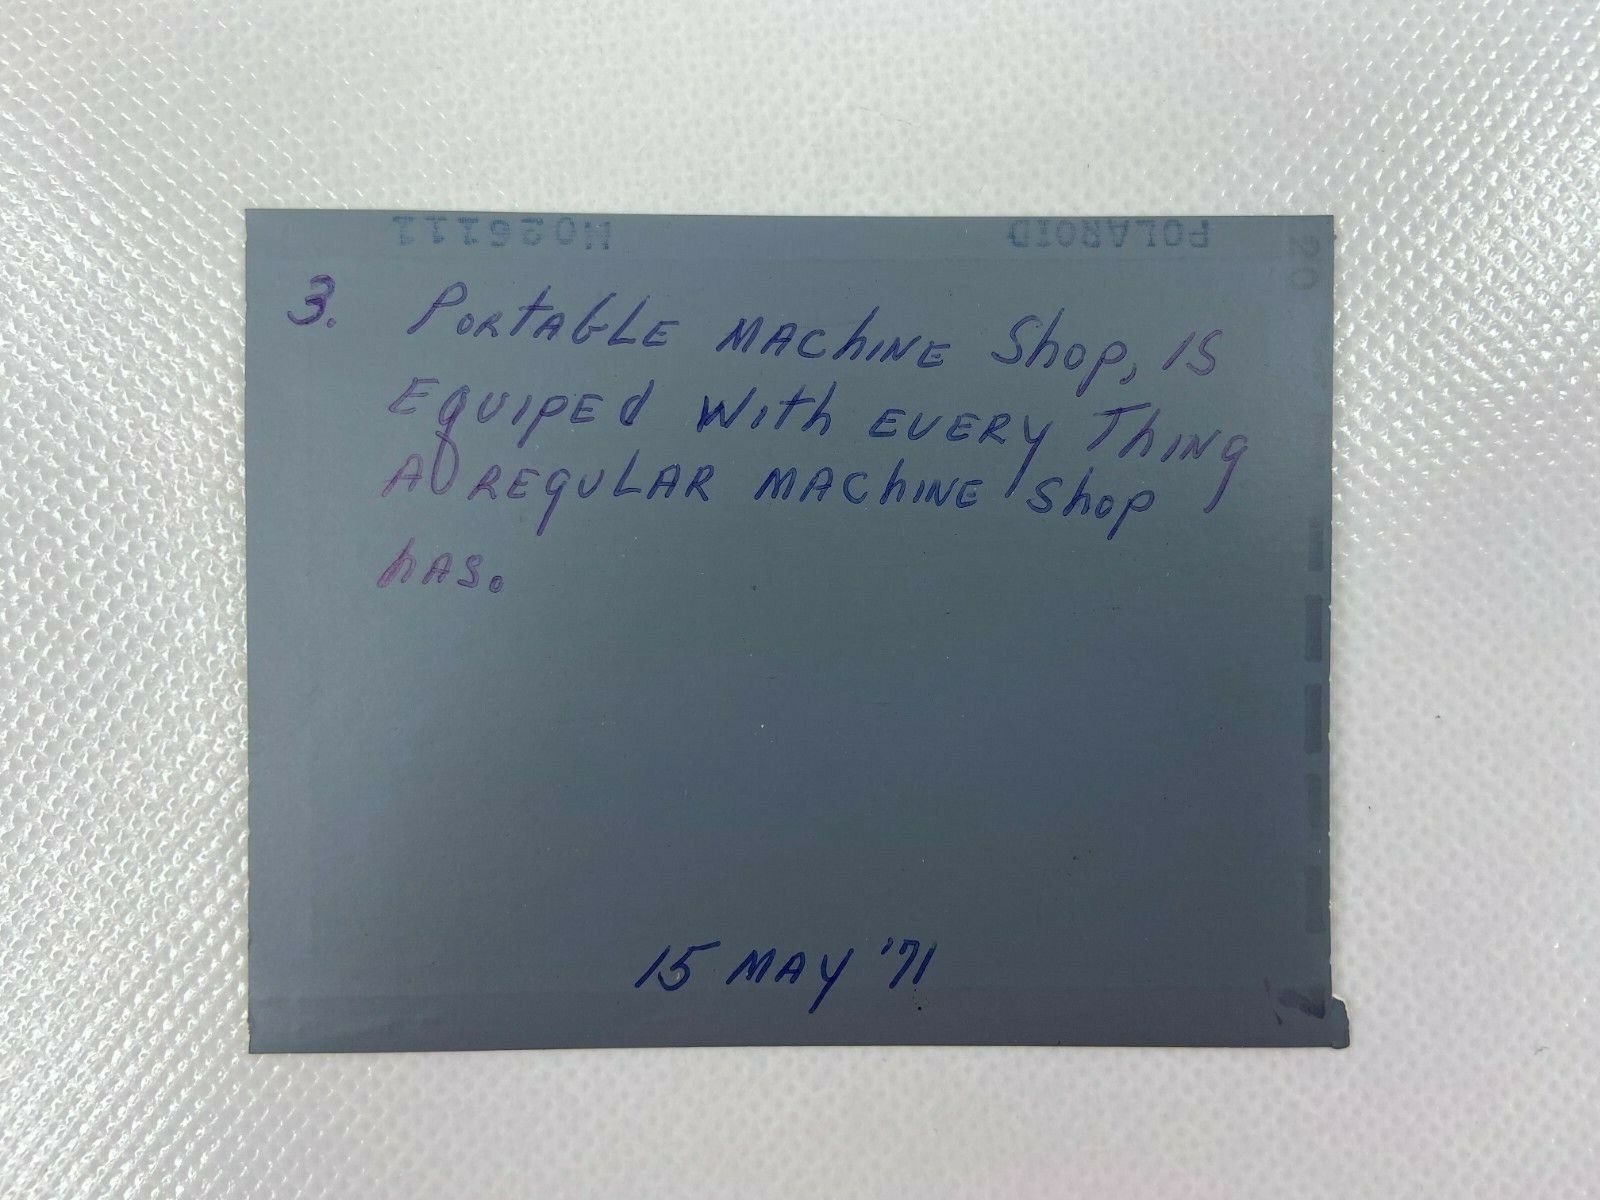 H026111 POLAROID
20
3. PORTABLE MACHINE Shop, IS
EQUIPEd With EVERY Thing
A REGULAR MACHINE Shop
hAS.
15 MAY '71